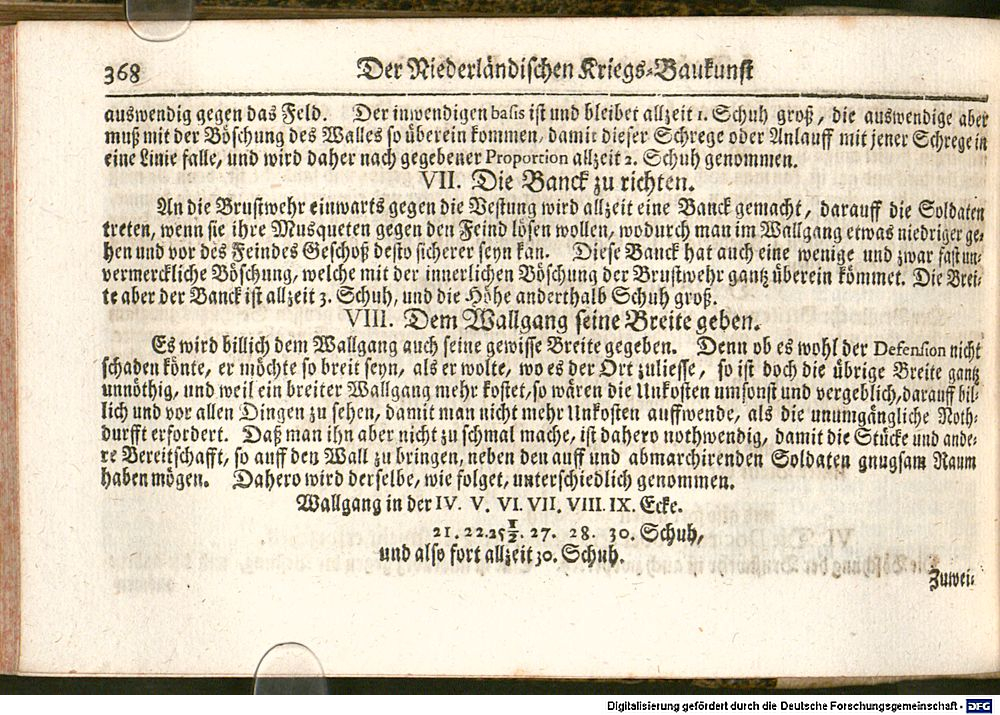 368
Der Niederländischen Kriegs-Baukunst
auswendig gegen das Feld. Der inwendigen basis ist und bleibet allzeit 1. Schuh groß, die auswendige aber
muß mit der Böschung des Walles so überein kommen, damit dieser Schrege oder Anlauff mit jener Schrege in
eine Linie falle, und wird daher nach gegebener Proportion allzeit 2. Schuh genommen.
VII. Die Banck zu richten.
An die Brustwehr einwarts gegen die Vestung wird allzeit eine Banck gemacht, darauff die Soldaten
treten, wenn sie ihre Musqueten gegen den Feind lösen wollen, wodurch man im Wallgang etwas niedriger ge-
hen und vor des Feindes Geschoß desto sicherer seyn kan. Diese Banck hat auch eine wenige und zwar fast un-
vermerckliche Böschung, welche mit der innerlichen Böschung der Brustwehr gantz überein kömmet. Die Brei-
te aber der Banck ist allzeit 3. Schuh, und die Höhe anderthalb Schuh groß.
VIII. Dem Wallgang seine Breite geben.
Es wird billich dem Wallgang auch seine gewisse Breite gegeben. Denn ob es wohl der Defension nicht
schaden könte, er möchte so breit seyn, als er wolte, wo es der Ort zuliesse, so ist doch die übrige Breite gantz
unnöthig, und weil ein breiter Wallgang mehr kostet, so wären die Unkosten umsonst und vergeblich, darauff bil-
lich und vor allen Dingen zu sehen, damit man nicht mehr Unkosten auffwende, als die unumgängliche Noth-
durfft erfordert. Daß man ihn aber nicht zu schmal mache, ist dahero nothwendig, damit die Stücke und ande-
re Bereitschafft, so auff den Wall zu bringen, neben den auff und abmarchirenden Soldaten gnugsam Raum
haben mögen. Dahero wird derselbe, wie folget, unterschiedlich genommen.
Wallgang in der IV. V. VI. VII. VIII. IX. Ecke.
21. 22. 25 1/2. 27. 28. 30. Schuh,
und also fort allzeit 30. Schuh.
Zuwei-
Digitalisierung gefördert durch die Deutsche Forschungsgemeinschaft - DFG